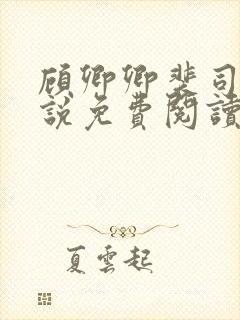 顾卿卿裴司
說免費閱讀
夏雲起